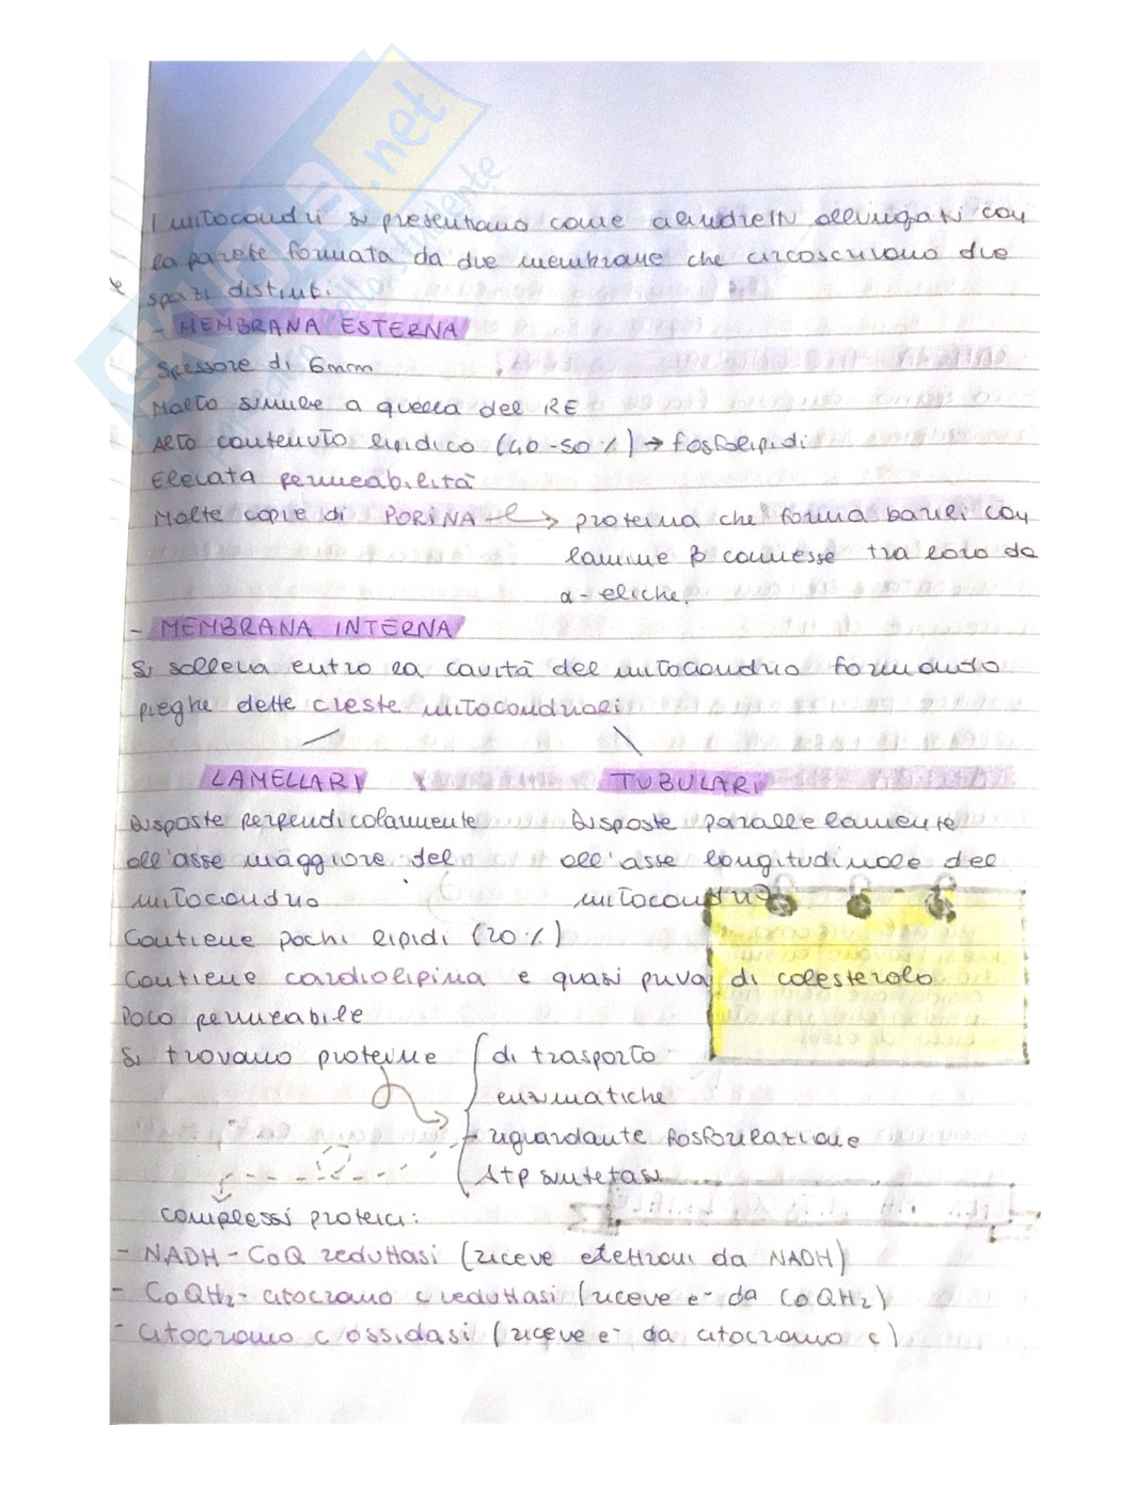 I mitocondri si presentano come cilindretti allungati con
la parete formata da due membrane che circoscrivono due
spazi distinti.
- MEMBRANA ESTERNA
Spessore di 6mm
Molto simile a quella del RE
Alto contenuto lipidico (40-50%) → fosfolipidi
Elevata permeabilità
Molte copie di PORINA → proteina che forma barili con
lamine β connesse tra loro da
α-eliche.
- MEMBRANA INTERNA
Si solleva entro la cavità del mitocondrio formando
pieghe dette creste mitocondriali
LAMELLARI TUBULARI
Disposte perpendicolarmente Disposte parallelamente
all'asse maggiore del all'asse longitudinale del
mitocondrio mitocondrio
Contiene pochi lipidi (20%)
Contiene cardiolipina e quasi priva di colesterolo
Poco permeabile
Si trovano proteine di trasporto
enzimatiche
riguardante fosforilazione
Atp sintetasi
complessi proteici:
- NADH-CoQ reduttasi (riceve elettroni da NADH)
- CoQH2-citocromo c reduttasi (riceve e- da CoQH2)
- citocromo c ossidasi (riceve e- da citocromo c)
skuola.net